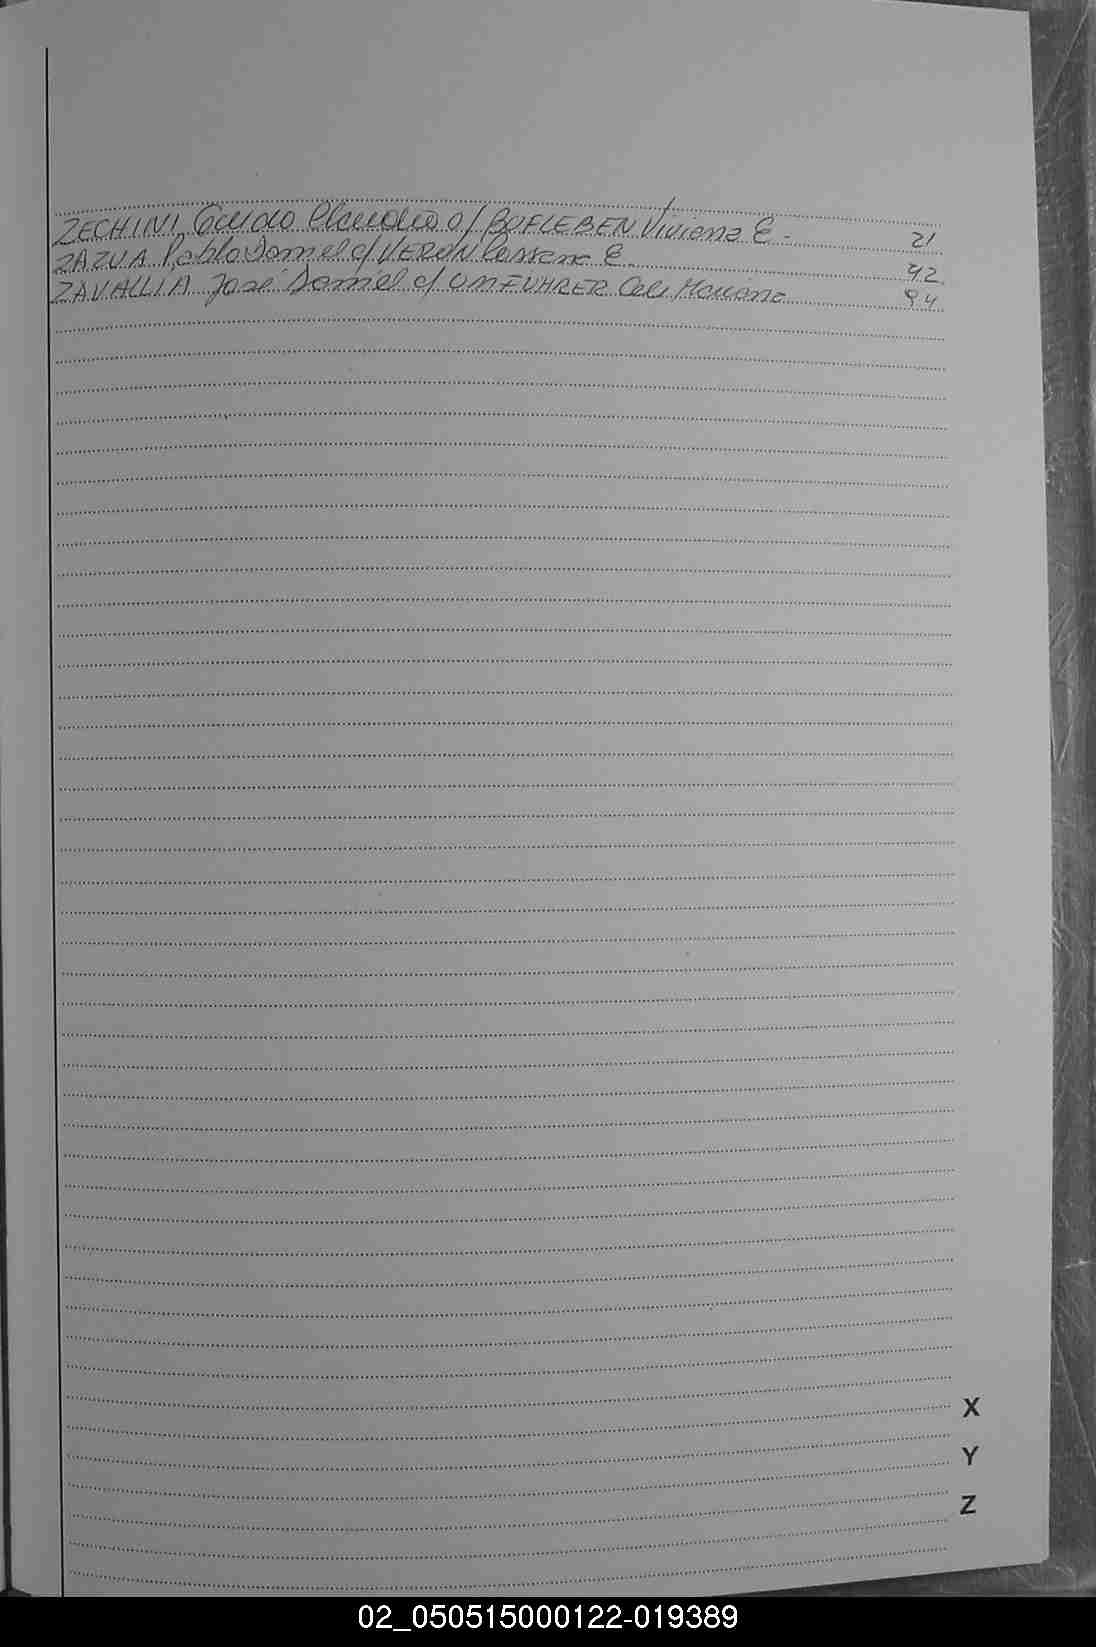 ZECHINI, Guido Claudio c/ BOFLEBEN Viviana E. 21
ZAZUA Pablo Daniel c/ VERON Rossana E. 42
ZAVALLIA José Daniel c/ UMFÜHRER Mariana 94
X
Y
Z
02_050515000122-019389